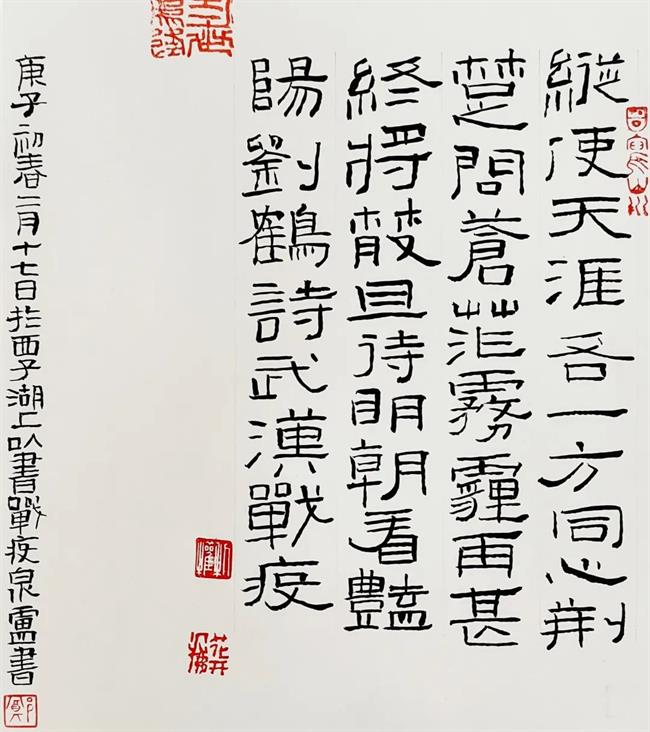 縱使天涯各一方同心荆
楚問蒼茫霧霾再甚
終將散且待明朝看豔
陽劉鶴詩武漢戰疫
庚子初春二月十七日於西子湖上以書戰疫泉盧書